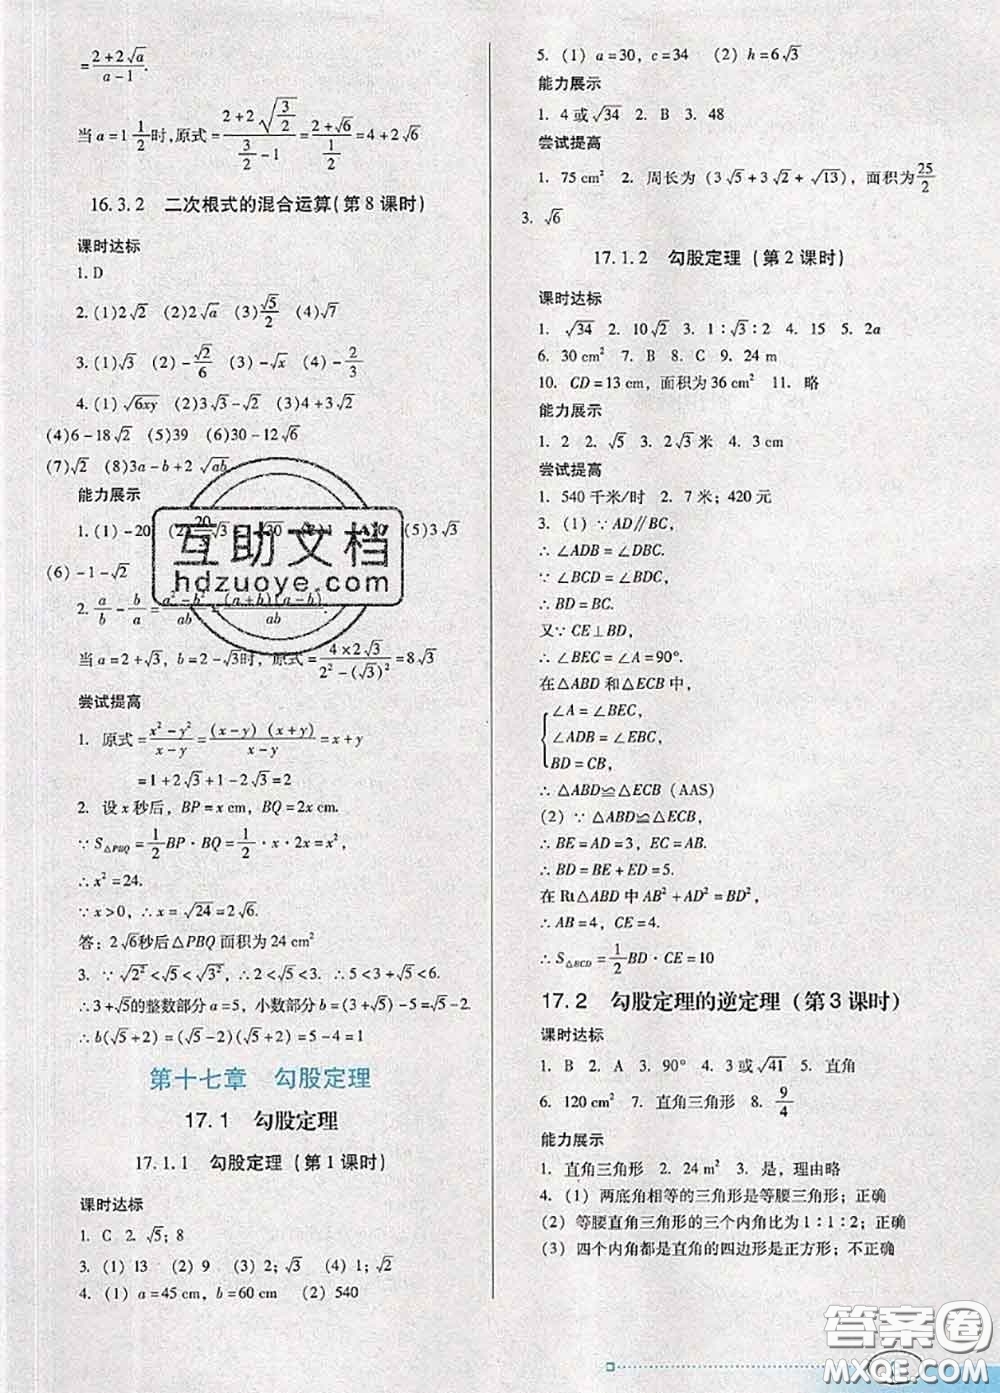 =(2+2√a)/(a-1).
当a=1 1/2时,原式=(2+2√(3/2))/(3/2-1)=(2+√6)/(1/2)=4+2√6
16.3.2 二次根式的混合运算(第8课时)
课时达标
1. D
2. (1)2√2 (2)2√a (3)√5/2 (4)√7
3. (1)√3 (2)-√2/6 (3)-√x (4)-2/3
4. (1)√6xy (2)3√3-√2 (3)4+3√2
(4)6-18√2 (5)39 (6)30-12√6
(7)√2 (8)3a-b+2√ab
能力展示
1. (1)-20 (5)3√3
(6)-1-√2
2. a/b-b/a=(a²-b²)/ab=(a+b)(a-b)/ab.
当a=2+√3, b=2-√3时,原式=(4×2√3)/(2²-(√3)²)=8√3
尝试提高
1. 原式=(x²-y²)/(x-y)=(x-y)(x+y)/(x-y)=x+y
=1+2√3+1-2√3=2
2. 设x秒后, BP=x cm, BQ=2x cm.
∵S△PBQ=1/2BP·BQ=1/2·x·2x=x²,
∴x²=24.
∵x>0, ∴x=√24=2√6.
答: 2√6秒后△PBQ面积为24 cm²
3. ∵√2²<√5<√3², ∴2<√5<3. ∴5<3+√5<6.
∴3+√5的整数部分a=5, 小数部分b=(3+√5)-5=√5-2.
∴b(√5+2)=(√5-2)(√5+2)=5-4=1
第十七章 勾股定理
17.1 勾股定理
17.1.1 勾股定理(第1课时)
课时达标
1. C 2. √5; 8
3. (1) 13 (2) 9 (3) 2; √3 (4) 1; √2
4. (1) a=45 cm, b=60 cm (2) 540
5. (1) a=30, c=34 (2) h=6√3
能力展示
1. 4或√34 2. B 3. 48
尝试提高
1. 75 cm² 2. 周长为(3√5+3√2+√13), 面积为25/2
3. √6
17.1.2 勾股定理(第2课时)
课时达标
1. √34 2. 10√2 3. 1∶√3∶2 4. 15 5. 2a
6. 30 cm² 7. B 8. C 9. 24 m
10. CD=13 cm, 面积为36 cm² 11. 略
能力展示
1. 2 2. √5 3. 2√3米 4. 3 cm
尝试提高
1. 540千米/时 2. 7米; 420元
3. (1) ∵AD∥BC,
∴∠ADB=∠DBC.
∵∠BCD=∠BDC,
∴BD=BC.
又∵CE⊥BD,
∴∠BEC=∠A=90°.
在△ABD和△ECB中,
∠A=∠BEC,
∠ADB=∠EBC,
BD=CB,
∴△ABD≌△ECB (AAS)
(2) ∵△ABD≌△ECB,
∴BE=AD=3, EC=AB.
∴BD=BE+ED=5.
在Rt△ABD中AB²+AD²=BD².
∴AB=4, CE=4.
∴S△BCD=1/2BD·CE=10
17.2 勾股定理的逆定理(第3课时)
课时达标
1. B 2. A 3. 90° 4. 3或√41 5. 直角
6. 120 cm² 7. 直角三角形 8. 9/4
能力展示
1. 直角三角形 2. 24 m² 3. 是, 理由略
4. (1) 两底角相等的三角形是等腰三角形; 正确
(2) 等腰直角三角形的三个内角比为1∶1∶2; 正确
(3) 四个内角都是直角的四边形是正方形; 不正确
互助文档
hdzuoye.com
答案圈
MXQE.COM